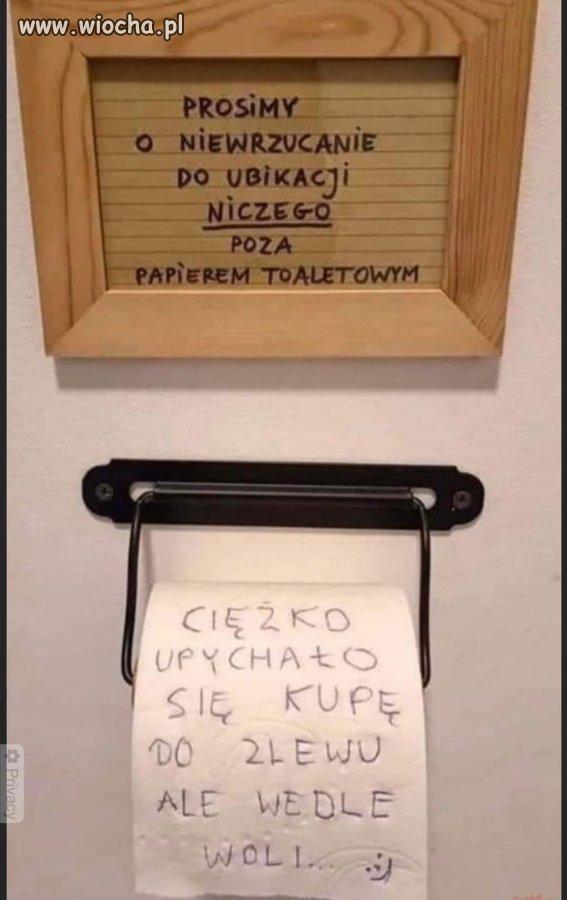 www.wiocha.pl
PROSIMY
O NIEWRZUCANIE
DO UBIKACJI
NICZEGO
POZA
PAPIEREM TOALETOWYM
CIĘŻKO
UPYCHAŁO
SIĘ KUPĘ
DO ZLEWU
ALE WEDLE
WOLI... :)
Privacy